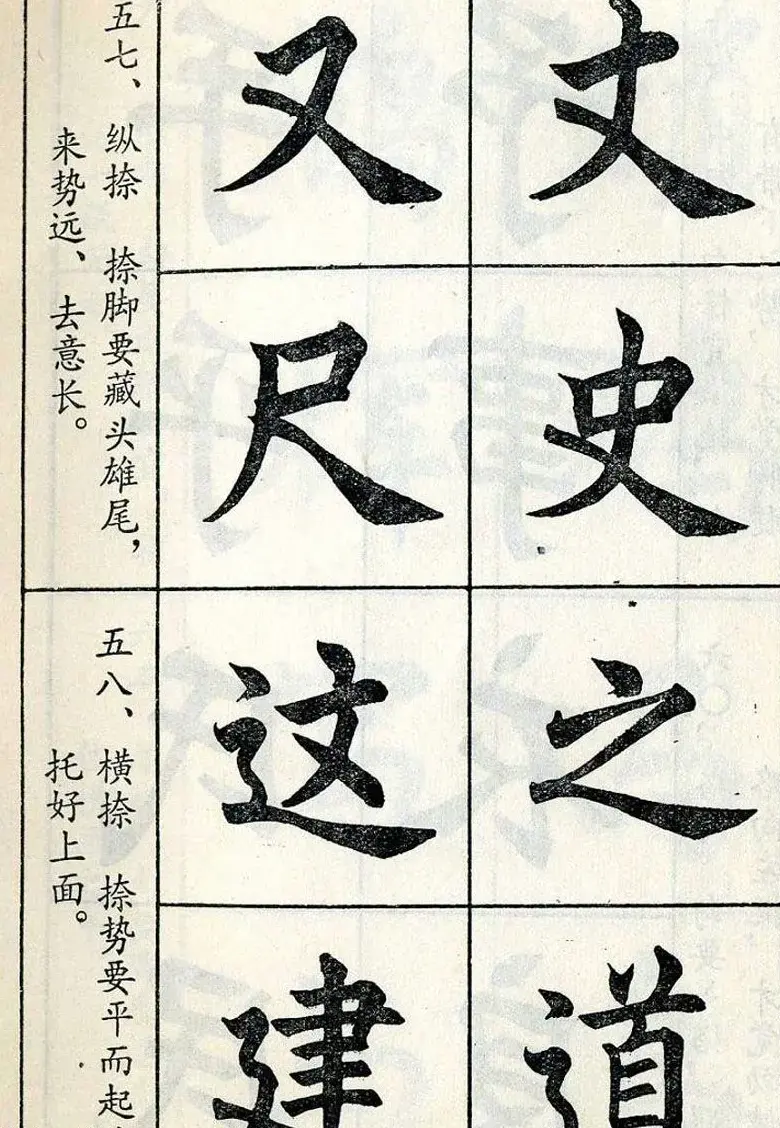 丈史之道
又尺这建
五七、纵捺 捺脚要藏头雄尾，
来势远、去意长。
五八、横捺 捺势要平而起
托好上面。